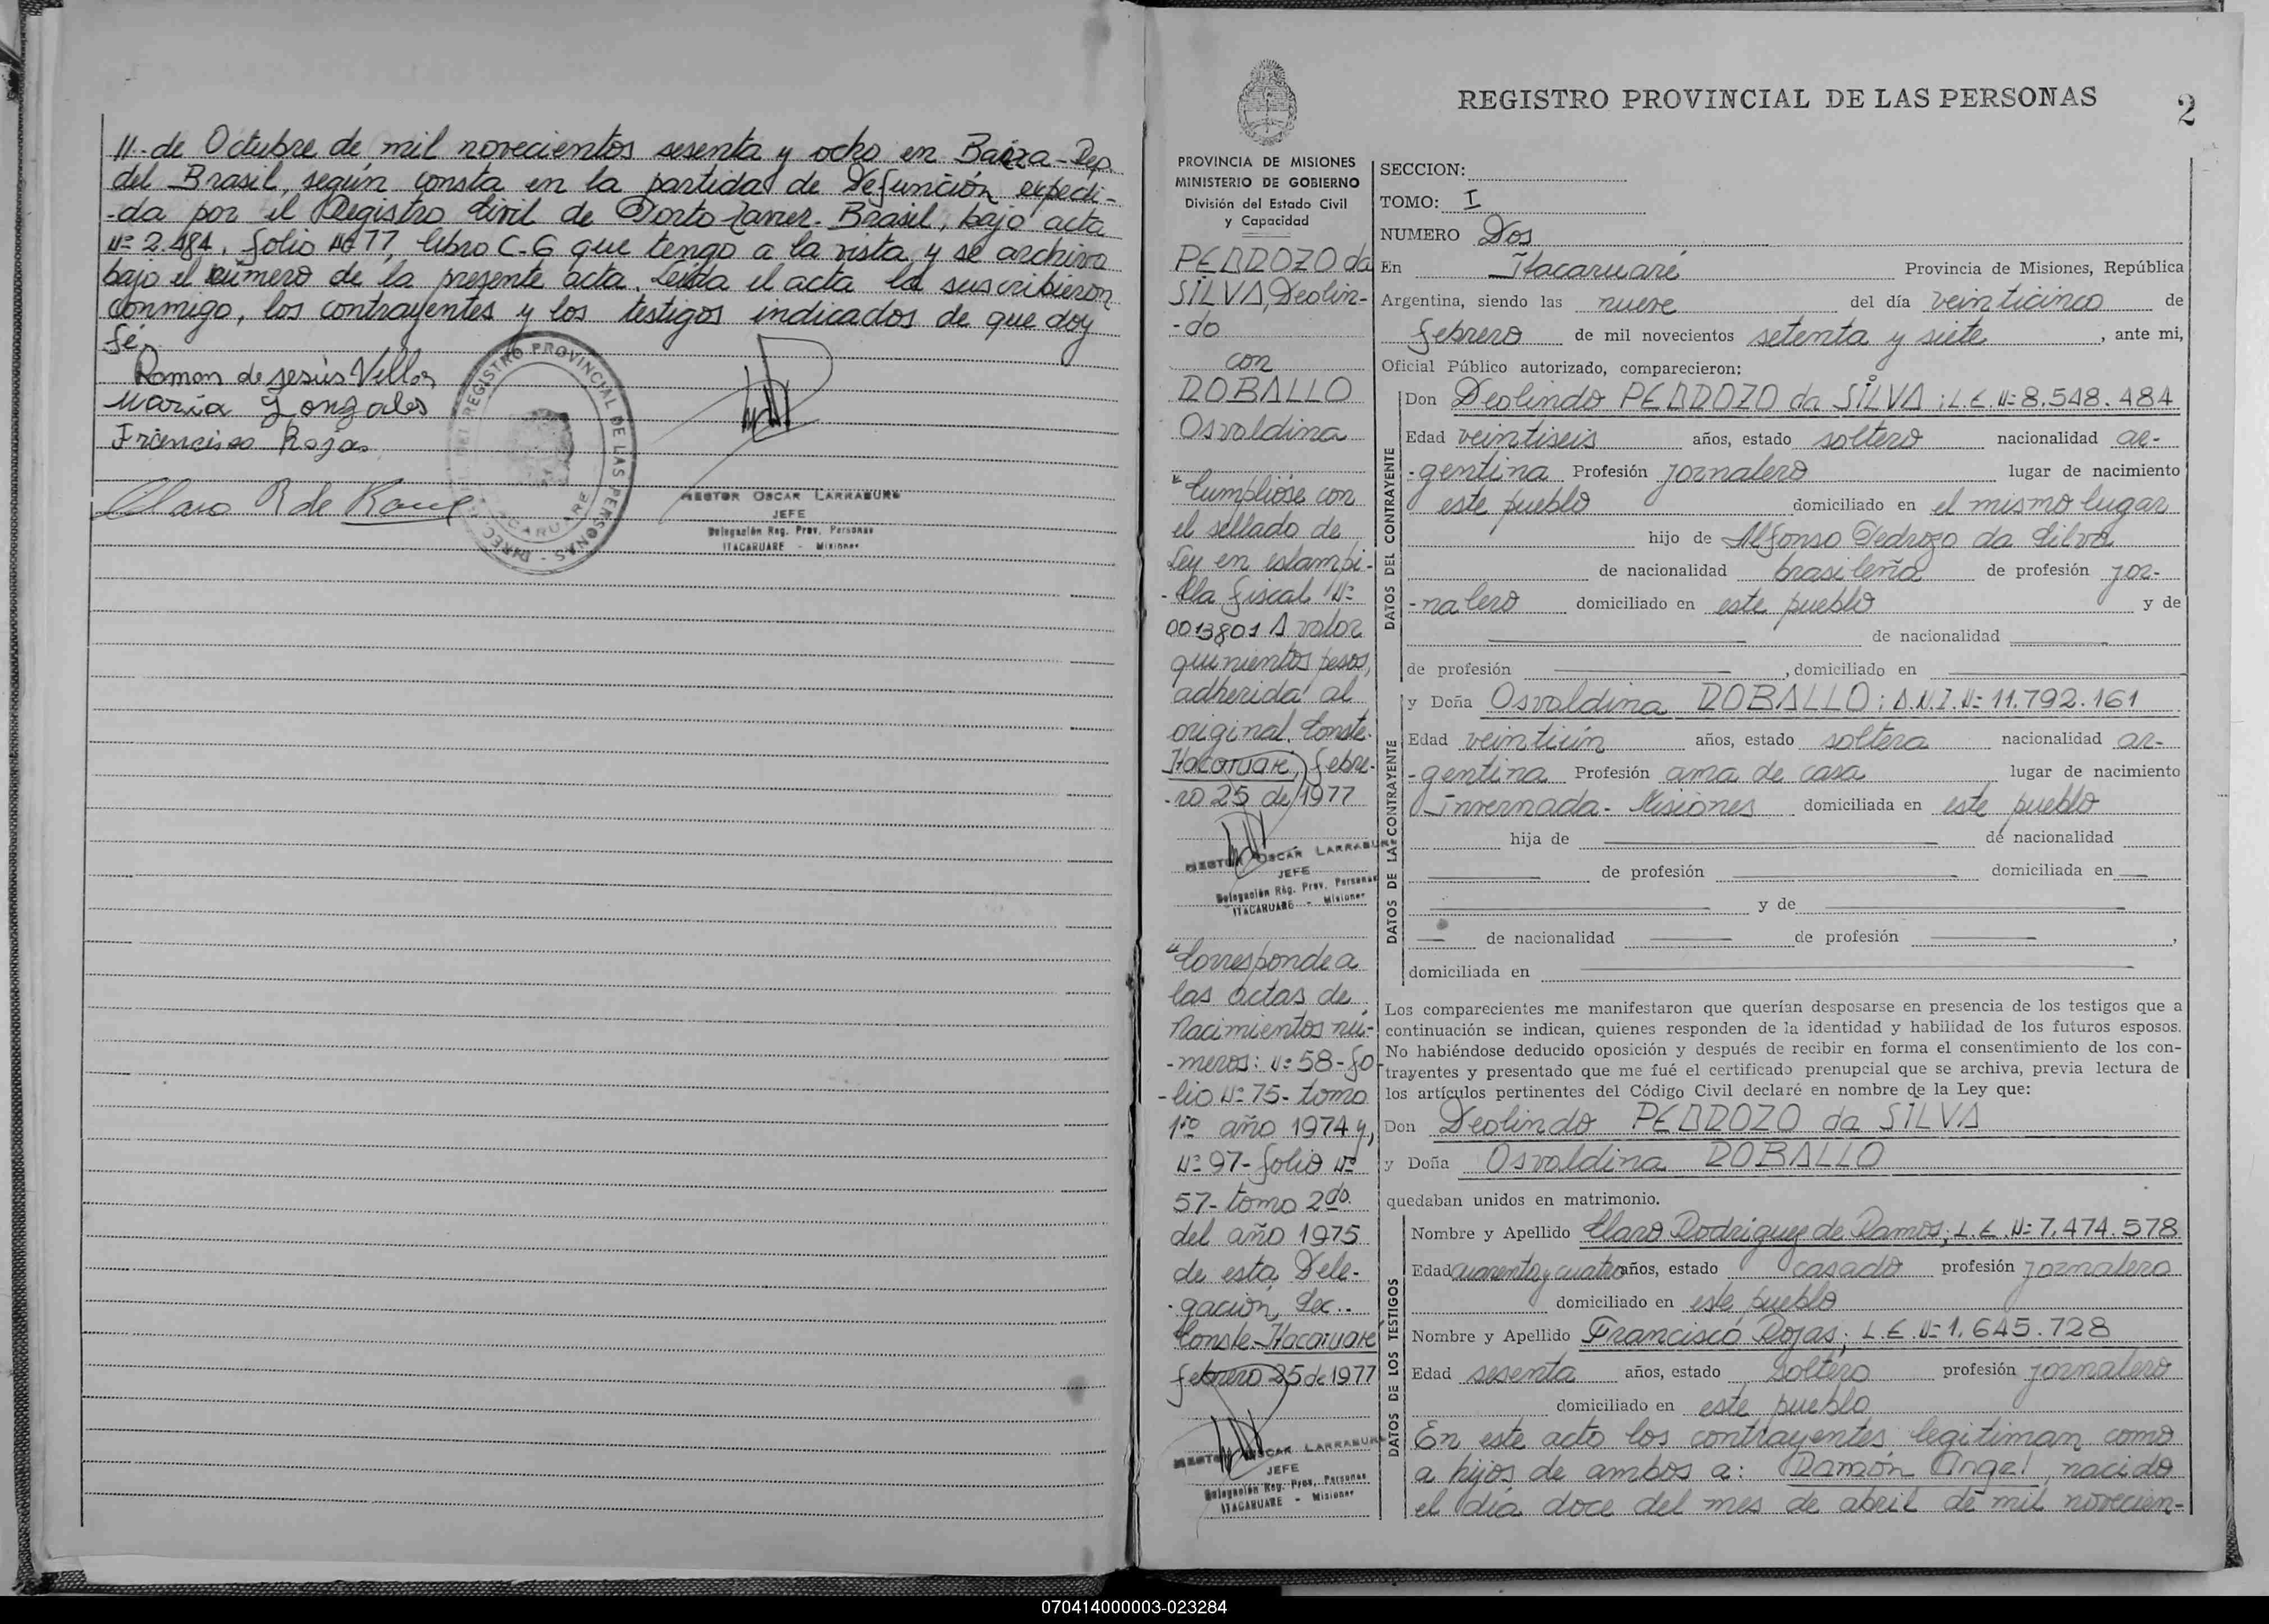 11- de Octubre de mil novecientos sesenta y ocho en Baiza - Rep.
del Brasil, según consta en la partida de Defunción expedi-
-da por el Registro Civil de Porto Xavier - Brasil, bajo acta
Nº 2.484, folio Nº 77, libro C-6 que tengo a la vista y se archiva
bajo el número de la presente acta. Leída el acta la suscribieron
conmigo, los contrayentes y los testigos indicados de que doy
fé.
Ramon de Jesús Villar
Maria Gonzales
Francisco Rojas
Claro R de Ramo
DIREC. DEL REGISTRO PROVINCIAL DE LAS PERSONAS
ITACARUARE
HECTOR OSCAR LARRABURE
JEFE
Delegación Reg. Prov. Personas
ITACARUARE - Misiones
REGISTRO PROVINCIAL DE LAS PERSONAS
2
PROVINCIA DE MISIONES
MINISTERIO DE GOBIERNO
División del Estado Civil
y Capacidad
PEDROZO da
SILVA, Deolin-
-do
con
ROBALLO
Osvaldina
"Cumplióse con
el sellado de
Ley en estampi-
-lla fiscal Nº
0013801 A valor
quinientos pesos,
adherida al
original. Conste.
Itacaruaré, febre-
-ro 25 de 1977
HECTOR OSCAR LARRABURE
JEFE
Delegación Reg. Prov. Personas
ITACARUARE - Misiones
"Corresponde a
las actas de
Nacimientos nú-
-meros: Nº 58 - fo-
-lio Nº 75 - tomo
1ro año 1974 y,
Nº 97 - folio Nº
57 - tomo 2do.
del año 1975
de esta Dele-
-gación, Sec..
Conste - Itacaruaré
febrero 25 de 1977
HECTOR OSCAR LARRABURE
JEFE
Delegación Reg. Prov. Personas
ITACARUARE - Misiones
SECCION:
TOMO: I
NUMERO Dos
En Itacaruaré Provincia de Misiones, República
Argentina, siendo las nueve del día veinticinco de
febrero de mil novecientos setenta y siete, ante mi,
Oficial Público autorizado, comparecieron:
DATOS DEL CONTRAYENTE
Don Deolindo PEDROZO da SILVA; L.E. Nº 8.548.484
Edad veintiseis años, estado soltero nacionalidad ar-
-gentina Profesión jornalero lugar de nacimiento
este pueblo domiciliado en el mismo lugar
hijo de Alfonso Pedrozo da Silva
de nacionalidad brasileña de profesión jor-
-nalero domiciliado en este pueblo y de
de nacionalidad
de profesión , domiciliado en
DATOS DE LA CONTRAYENTE
y Doña Osvaldina ROBALLO; D.N.I. Nº 11.792.161
Edad veintiún años, estado soltera nacionalidad ar-
-gentina Profesión ama de casa lugar de nacimiento
Invernada - Misiones domiciliada en este pueblo
hija de de nacionalidad
de profesión domiciliada en
y de
de nacionalidad de profesión ,
domiciliada en
Los comparecientes me manifestaron que querían desposarse en presencia de los testigos que a
continuación se indican, quienes responden de la identidad y habilidad de los futuros esposos.
No habiéndose deducido oposición y después de recibir en forma el consentimiento de los con-
trayentes y presentado que me fué el certificado prenupcial que se archiva, previa lectura de
los artículos pertinentes del Código Civil declaré en nombre de la Ley que:
Don Deolindo PEDROZO da SILVA
y Doña Osvaldina ROBALLO
quedaban unidos en matrimonio.
DATOS DE LOS TESTIGOS
Nombre y Apellido Claro Rodriguez de Ramos; L.E. Nº 7.474.578
Edad cuarenta y cuatro años, estado casado profesión jornalero
domiciliado en este pueblo
Nombre y Apellido Francisco Rojas; L.E. Nº 1.645.728
Edad sesenta años, estado soltero profesión jornalero
domiciliado en este pueblo
En este acto los contrayentes legitiman como
a hijos de ambos a: Ramón Angel, nacido
el día doce del mes de abril de mil novecien-
070414000003-023284